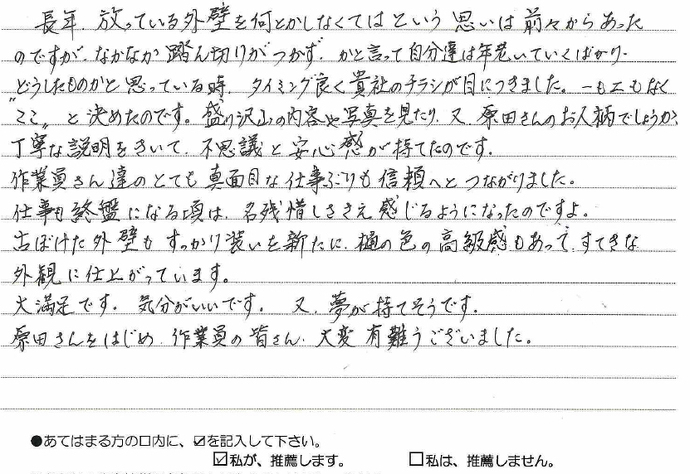 長年、放っている外壁を何とかしなくてはという思いは前々からあった
のですが、なかなか踏ん切りがつかず、かと言って自分達は年老いていくばかり・
どうしたものかと思っている時、タイミング良く貴社のチラシが目につきました。一も二もなく
“ここ”と決めたのです。盛り沢山の内容や写真を見たり、又、原田さんのお人柄でしょうか、
丁寧な説明をきいて、不思議と安心感が持てたのです。
作業員さん達のとても真面目な仕事ぶりも信頼へとつながりました。
仕事も終盤になる頃は、名残惜しささえ感じるようになったのですよ。
古ぼけた外壁もすっかり装いを新たに、樋の色の高級感もあって、すてきな
外観に仕上がっています。
大満足です。気分がいいです。又、夢が持てそうです。
原田さんをはじめ、作業員の皆さん、大変有難うございました。
●あてはまる方の口内に、☑を記入して下さい。
☑私が、推薦します。 □私は、推薦しません。